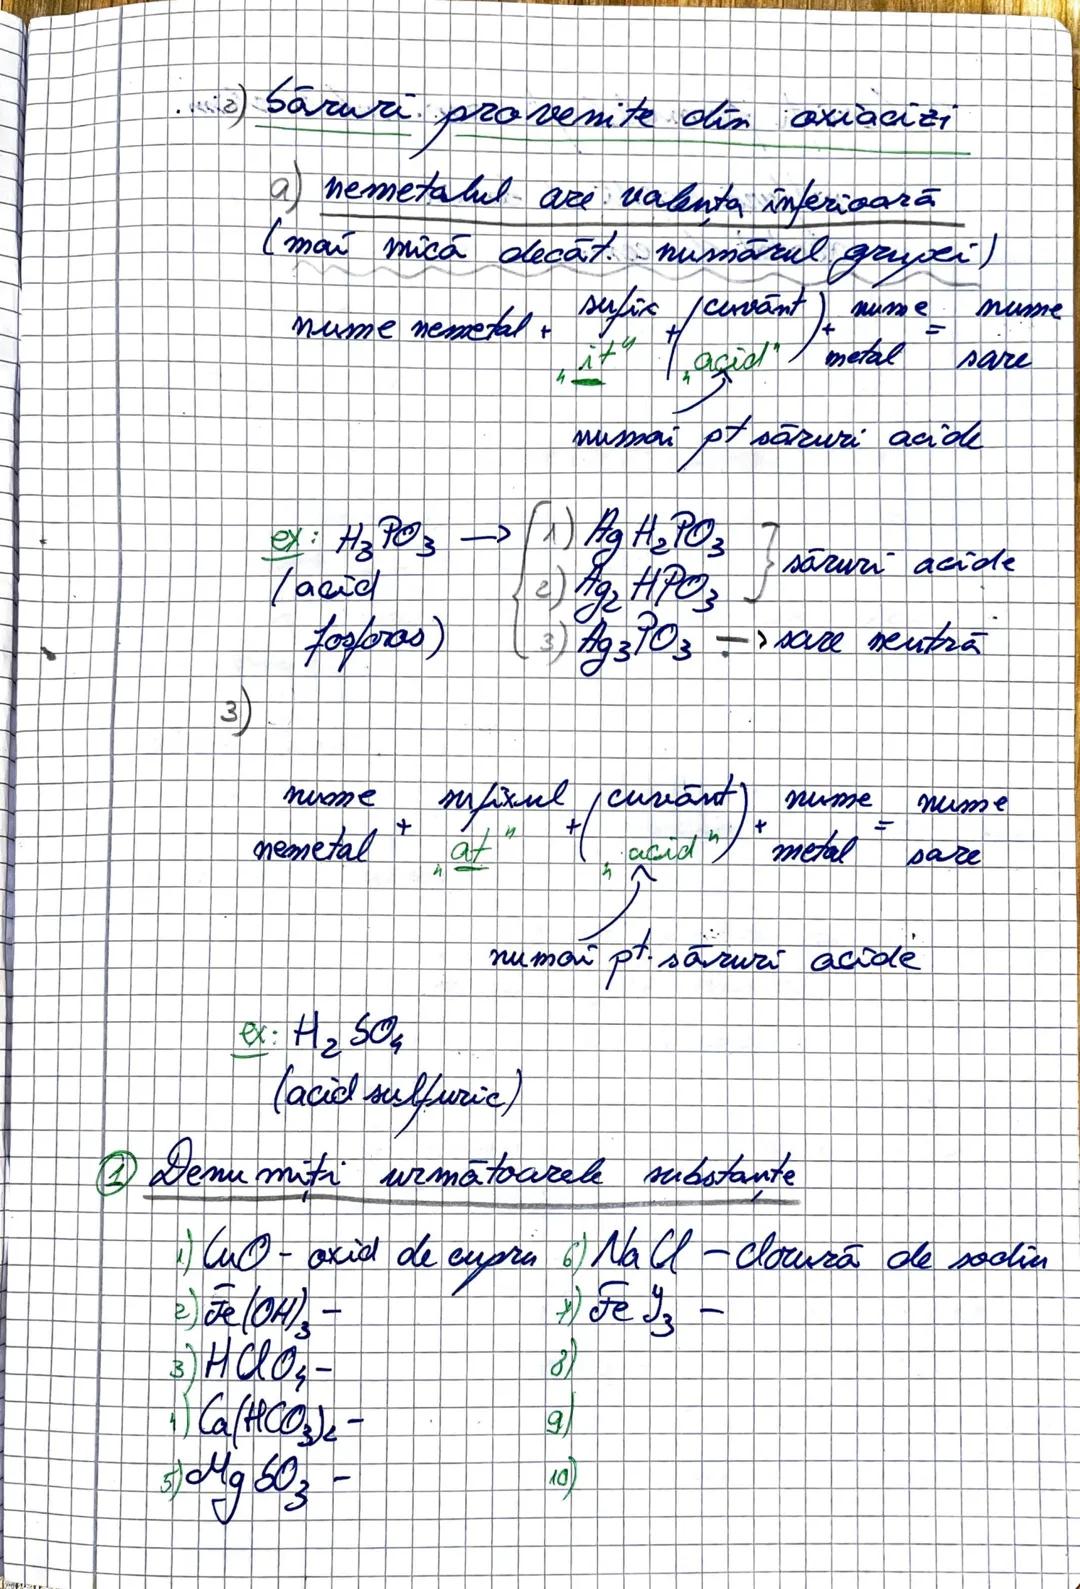 2) Săruri provenite din oxiacizi
a) nemetalul are valența inferioară
(mai mică decât numărul grupei)
nume nemetal + sufix „it" + (cuvânt „acid") + nume metal = nume sare
numai pt săruri acide
ex: H₃PO₃ → 1) AgH₂PO₃
(acid 2) Ag₂HPO₃ } săruri acide
fosforos) 3) Ag₃PO₃ → sare neutră
3)
nume nemetal + sufixul „at" + (cuvânt „acid") + nume metal = nume sare
numai pt. săruri acide
ex: H₂SO₄
(acid sulfuric)
① Denumiți următoarele substanțe
1) CuO - oxid de cupru 6) NaCl - clorură de sodiu
2) Fe(OH)₃ - 7) FeI₃ -
3) HClO₄ - 8)
4) Ca(HCO₃)₂ - 9)
5) MgSO₃ - 10)